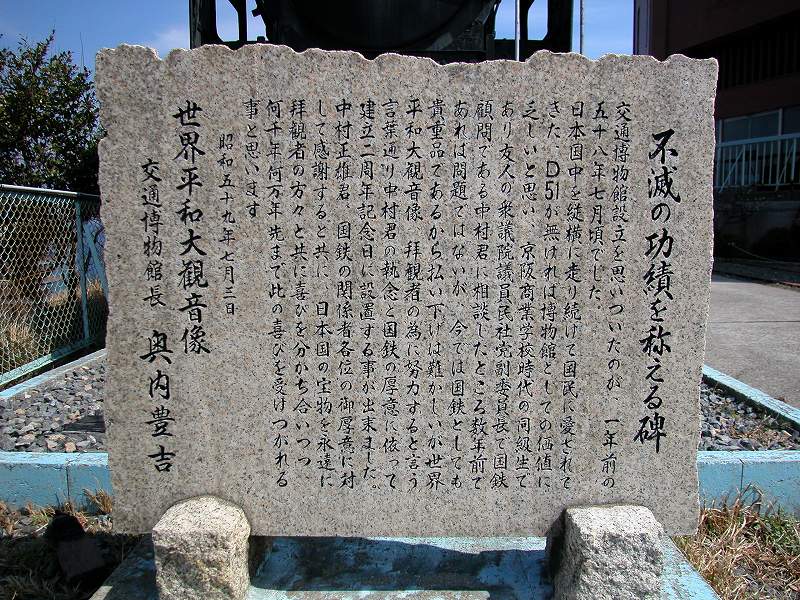 不滅の功績を称える碑
交通博物館設立を思いついたのが、一年前の
五十八年七月頃でした。
日本国中を縦横に走り続けて国民に愛されて
きた、D51が無ければ博物館としての価値に
乏しいと思い、京阪商業学校時代の同級生で
あり友人の衆議院議員民社党副委員長で国鉄
顧問である中村君に相談したところ数年前で
あれば問題ではないが、今では国鉄としても
貴重品であるから払い下げは難かしいが世界
平和大観音像、拝観者の為に努力すると言う
言葉通り中村君の執念と国鉄の厚意に依って
建立二周年記念日に設置する事が出来ました。
中村正雄君、国鉄の関係者各位の御厚意に対
して感謝すると共に、日本国の宝物を永遠に
拝観者の方々と共に喜びを分かち合いつつ、
何千年何万年先まで此の喜びを受けつがれる
事と思います
昭和五十九年七月三日
世界平和大観音像
交通博物館長 奥内豊吉